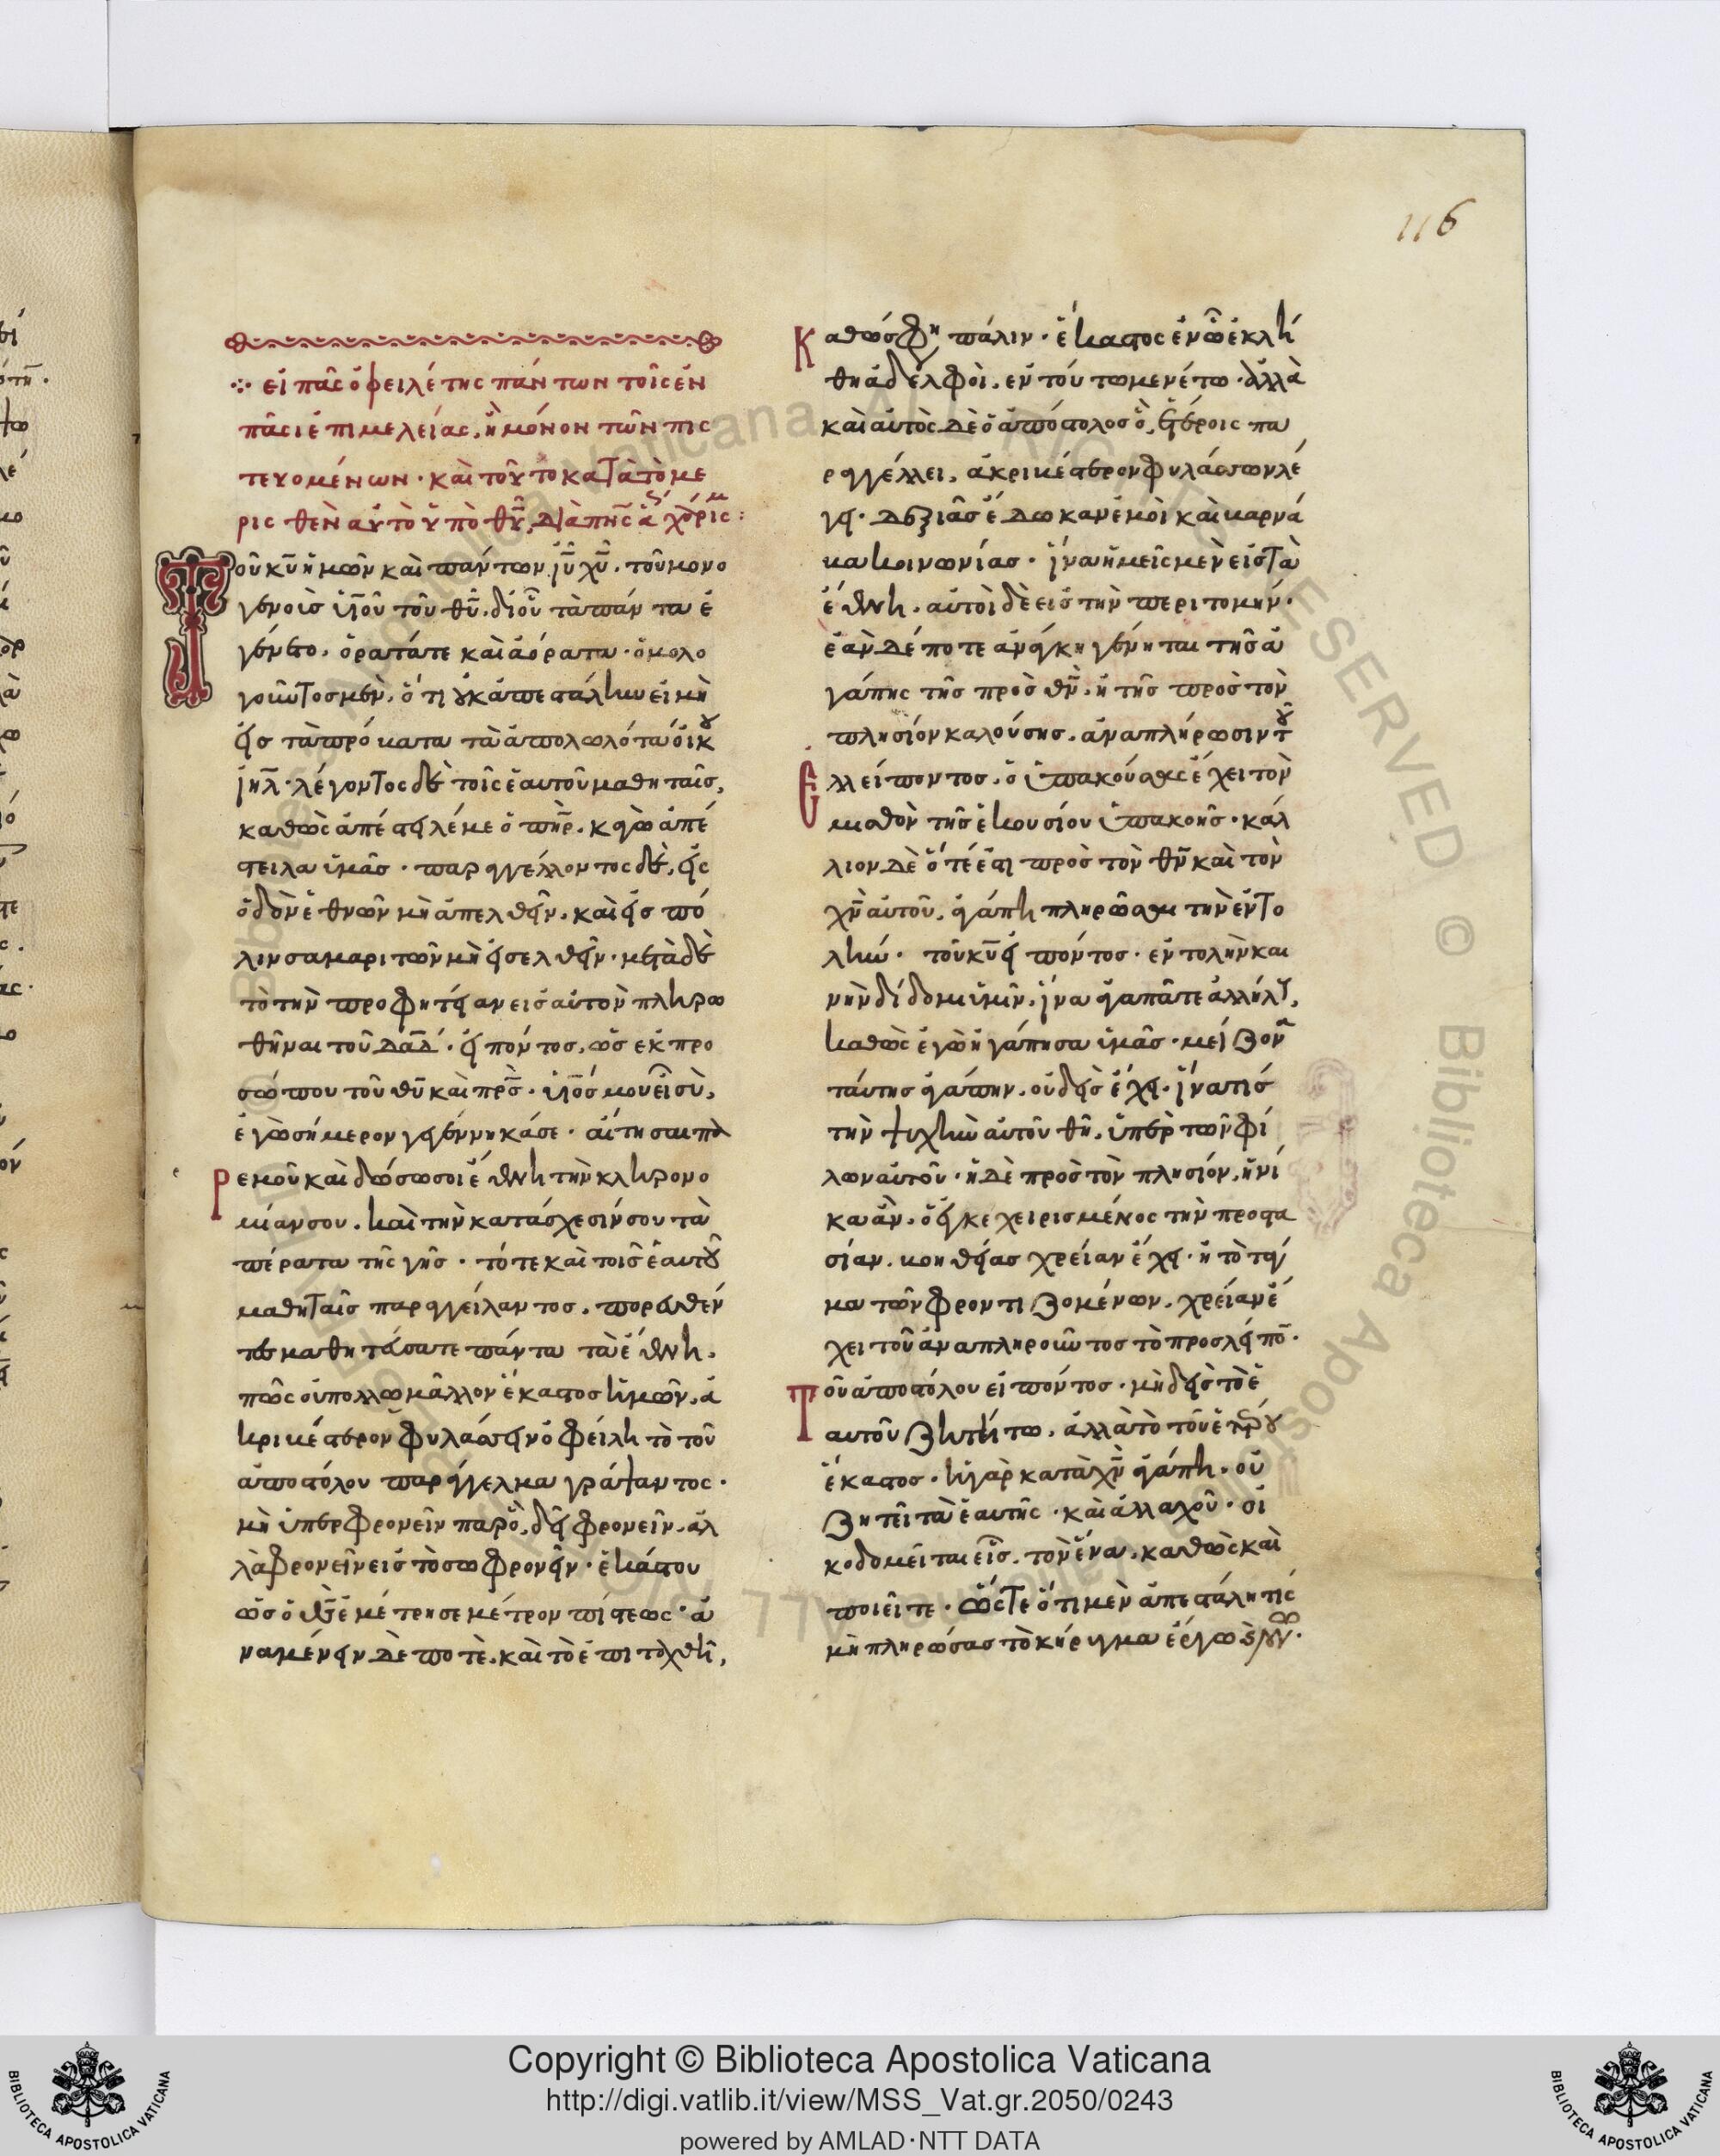 116
εἰ πᾶς ὀφειλέτης πάντων τοῖς ἐν
πᾶσι ἐπιμελείας, ἢ μόνον τῶν πις
τευομένων · καὶ τοῦτο κατὰ τὸ με
ρισθὲν αὐτὸ ὑπὸ θῦ, διὰ
Τοῦ κῦ ἡμῶν καὶ πάντων ἰῦ χῦ. τοῦ μονο
γενοῖς υἱοῦ τοῦ θῦ. δι οὗ τὰ πάντα ἐ
γένετο. ὁρατά τε καὶ ἀόρατα · ὁμολο
γοῦντος μὲν, ὅτι οὐκ ἀπεστάλην εἰ μὴ
εἰς τὰ πρόβατα τὰ ἀπολωλότα οἴκου
ἰηλ · λέγοντος δὲ τοῖς ἑαυτοῦ μαθηταῖς,
καθὼς ἀπέστειλέ με ὁ πηρ. κἀγὼ ἀπέ
στειλα ὑμᾶς · παραγγέλλοντος δὲ, εἰς
ὁδὸν ἐθνῶν μὴ ἀπελθεῖν. καὶ εἰς πό
λιν σαμαριτῶν μὴ εἰσελθεῖν · μετὰ δὲ
τὸ τὴν προφητείαν εἰς αὐτὸν πληρω
θῆναι τοῦ δαδ · εἰπόντος, ὡς ἐκ προ
σώπου τοῦ θῦ καὶ πρς · υἱός μου εἶ σὺ,
ἐγὼ σήμερον γεγέννηκά σε · αἴτησαι πα
ρ ἐμοῦ καὶ δώσω σοι ἔθνη τὴν κληρονο
μίαν σου. καὶ τὴν κατάσχεσίν σου τὰ
πέρατα τῆς γῆς · τότε καὶ τοῖς ἑαυτοῦ
μαθηταῖς παραγγείλαντος. πορευθέν
τες μαθητεύσατε πάντα τὰ ἔθνη.
πῶς οὐ πολλῶ μᾶλλον ἕκαστος ἡμῶν, ἀ
κριβέστερον φυλάσσειν ὀφείλη τὸ τοῦ
ἀποστόλου παράγγελμα γράψαντος ·
μὴ ὑπερφρονεῖν παρ ὃ, δεῖ φρονεῖν. ἀλ
λὰ φρονεῖν εἰς τὸ σωφρονεῖν · ἑκάστου
ὡς ὁ θς ἐμέτρησε μέτρον πίστεως · ἀ
ναμένειν δέ ποτε. καὶ τὸ ἐπιταχθῆ,
Καθώς φη πάλιν · ἕκαστος ἐν ὧ ἐκλή
θη ἀδελφοὶ. ἐν τούτω μενέτω · ἀλλὰ
καὶ αὐτὸς δὲ ὁ ἀπόστολος ὃ, ἑτέροις πα
ραγγέλλει, ἀκριβέστερον φυλάσσων λέ
γει · δεξιὰς ἔδωκαν ἐμοὶ καὶ βαρνά
βα κοινωνίας · ἵνα ἡμεῖς μὲν εἰς τὰ
ἔθνη. αὐτοὶ δὲ εἰς τὴν περιτομήν ·
ἐὰν δέ ποτε ἀνάγκη γένηται τῆς ἀ
γάπης τῆς πρὸς θν. ἢ τῆς πρὸς τὸν
πλησίον καλούσης. ἀναπλήρωσιν τοῦ
Ελλείποντος. ὁ ὑπακούσας ἔχει τὸν
μισθὸν τῆς ἑκουσίου ὑπακοῆς · κάλ
λιον δὲ ὅτέ ἐστι πρὸς τὸν θν καὶ τὸν
χν αὐτοῦ. ἀγάπη πληρῶσαι τὴν ἐντο
λὴν. τοῦ κῦ εἰπόντος · ἐντολὴν και
νὴν δίδομι ὑμῖν. ἵνα ἀγαπᾶτε ἀλλήλους,
καθὼς ἐγὼ ἠγάπησα ὑμᾶς · μείζονα
ταύτης ἀγάπην. οὐδεὶς ἔχει · ἵνα τις
τὴν ψυχὴν αὐτοῦ θῆ. ὑπὲρ τῶν φί
λων αὐτοῦ · ἢ δὲ πρὸς τὸν πλησίον. ἡνί
κα ἂν. ὁ ἐγκεχειρισμένος τὴν προστα
σίαν. βοηθείας χρείαν ἔχει · ἢ τὸ τάγ
μα τῶν φροντιζομένων. χρείαν ἔ
χει τοῦ ἀναπληροῦντος τὸ προσλεῖπον.
Τοῦ ἀποστόλου εἰπόντος · μὴ δεὶς τὸ ἑ
αυτοῦ ζητείτω. ἀλλὰ τὸ τοῦ ἑτέρου
ἕκαστος · ἡ γὰρ κατὰ χν ἀγάπη. οὐ
ζητεῖ τὰ ἑαυτῆς · καὶ ἀλλαχοῦ · οἰ
κοδομεῖται εἷς. τὸν ἕνα. καθὼς καὶ
ποιεῖτε · ὥστε ὅτι μὲν ἀπεστάλη τίς
μὴ πληρώσας τὸ κήρυγμα
Copyright © Biblioteca Apostolica Vaticana
http://digi.vatlib.it/view/MSS_Vat.gr.2050/0243
powered by AMLAD·NTT DATA
BIBLIOTECA APOSTOLICA VATICANA
BIBLIOTECA APOSTOLICA VATICANA